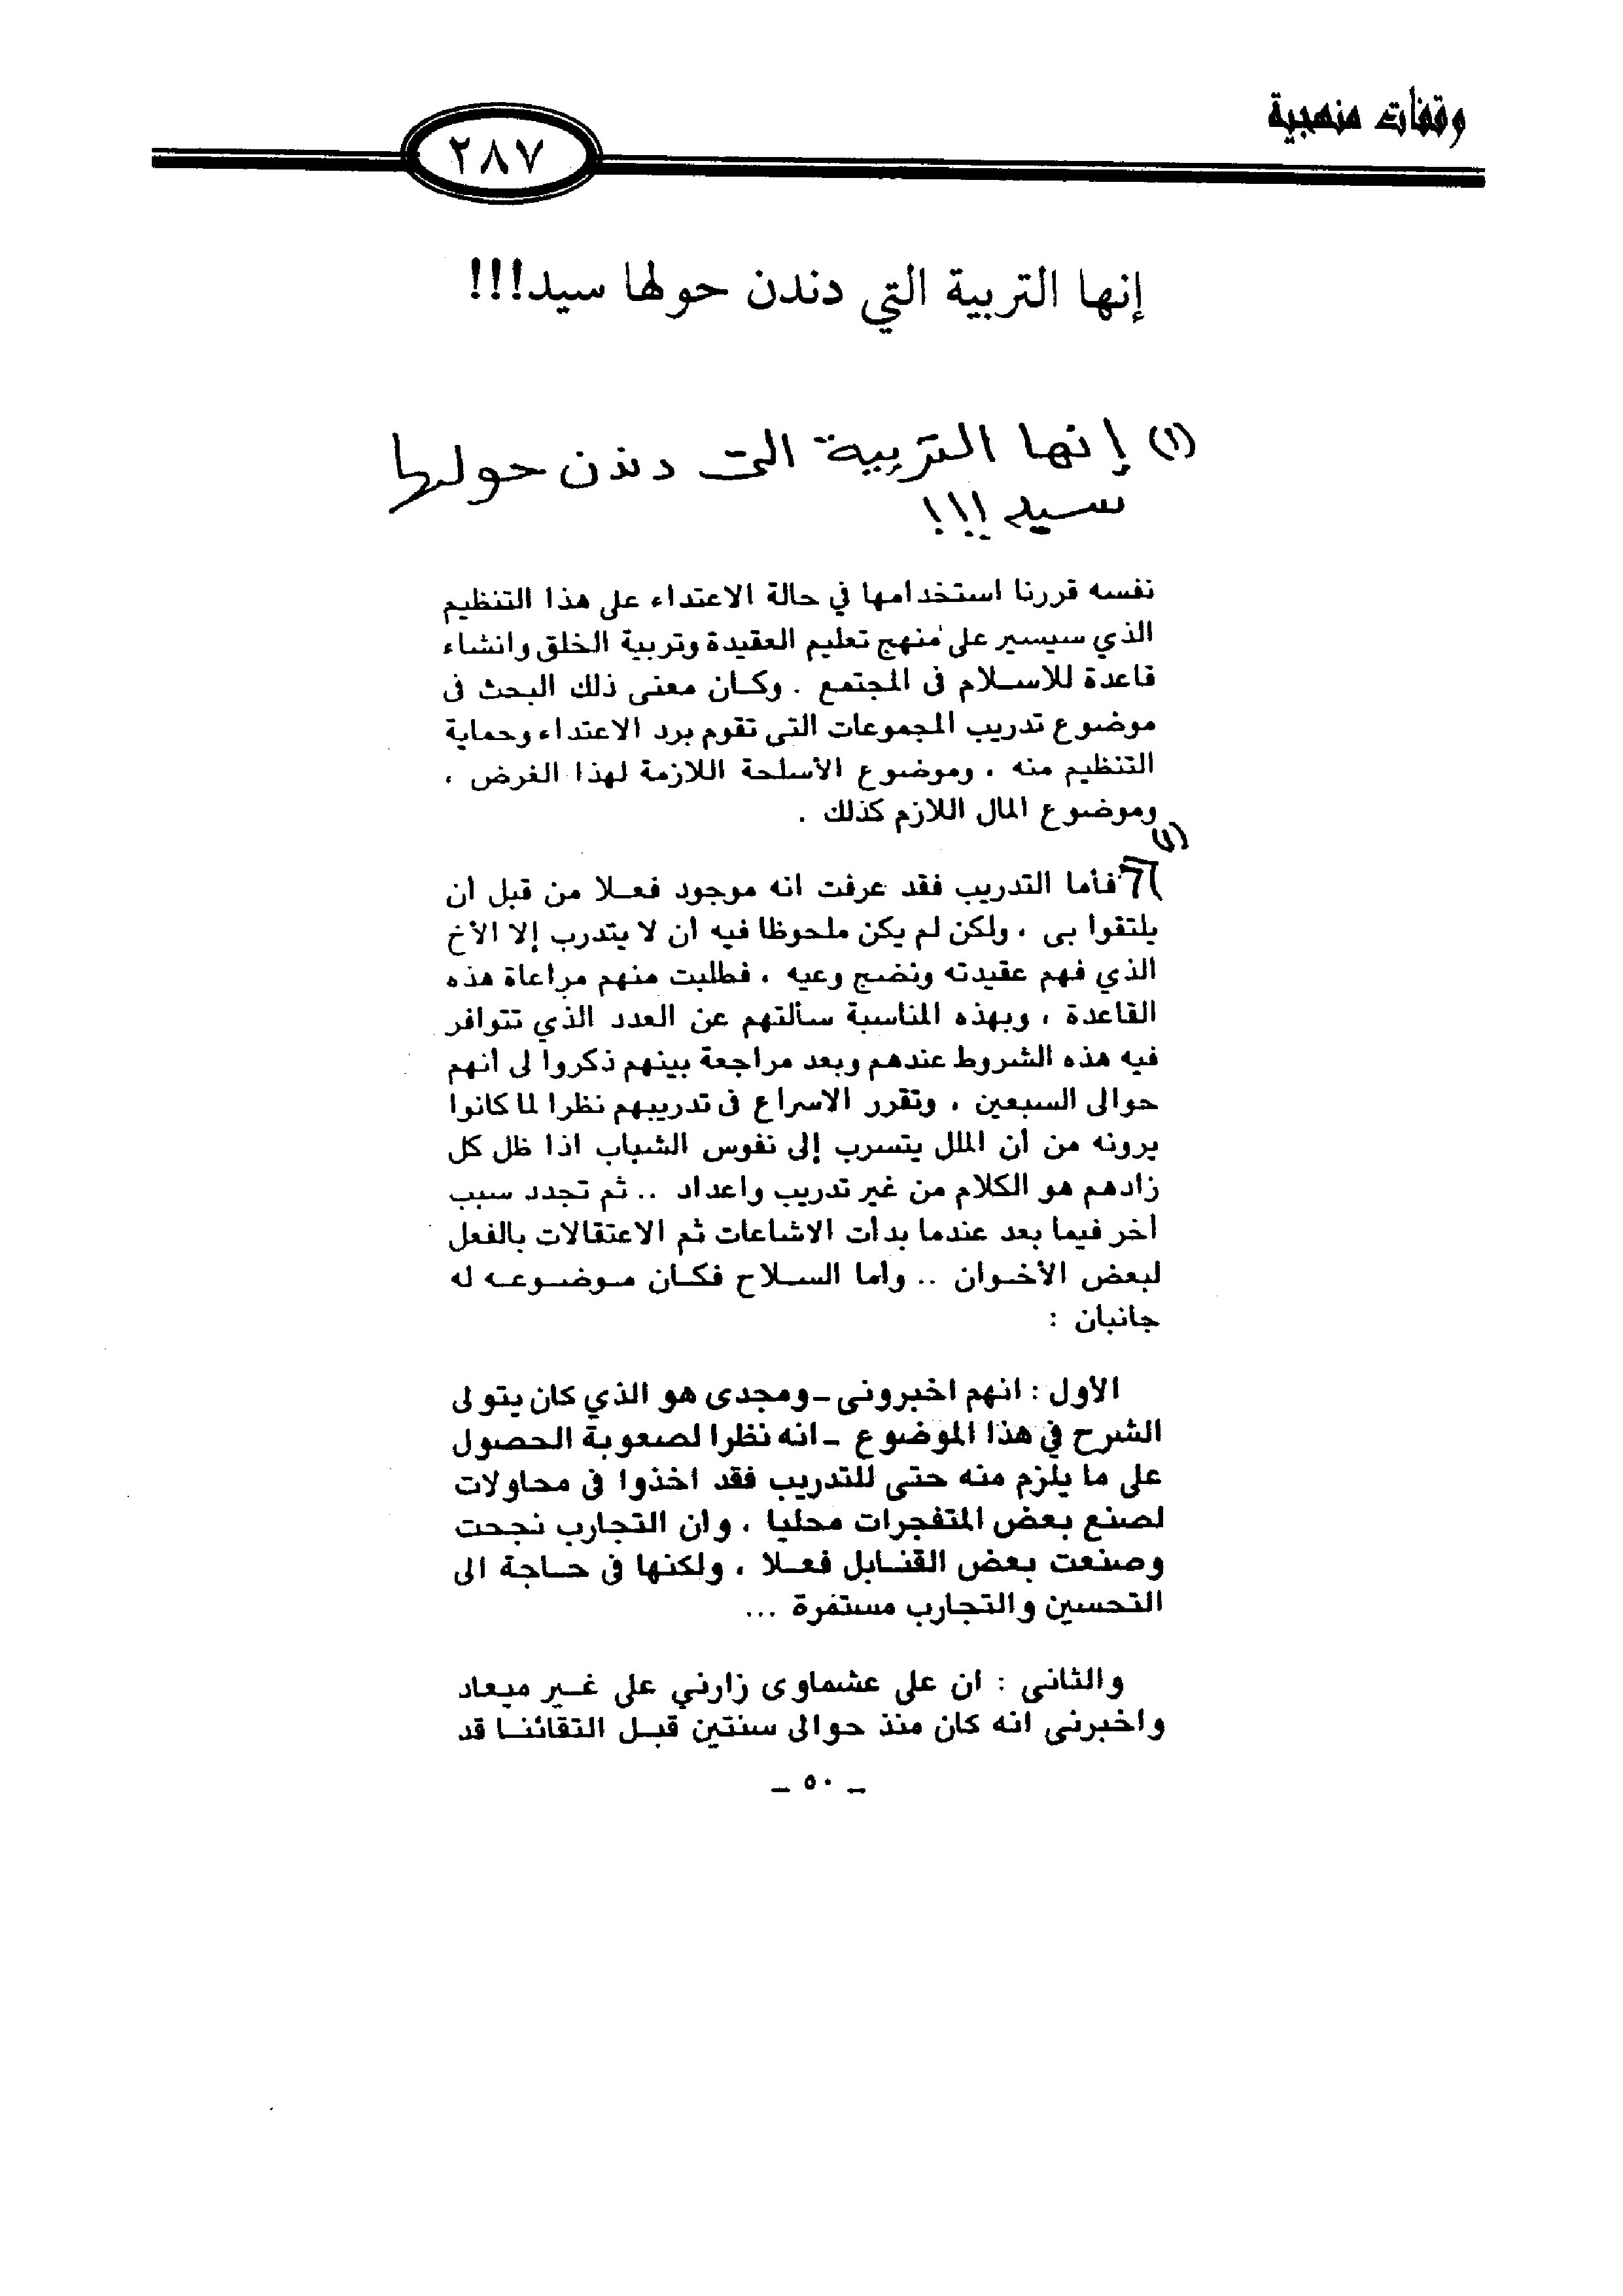 وقفات منهجية
٢٨٧
إنها التربية التي دندن حولها سيد!!!
(١) إنها التربية التى دندن حولها
سيد!!!
نفسه قررنا استخدامها في حالة الاعتداء على هذا التنظيم
الذي سيسير على منهج تعليم العقيدة وتربية الخلق وانشاء
قاعدة للاسلام فى المجتمع . وكان معنى ذلك البحث فى
موضوع تدريب المجموعات التى تقوم برد الاعتداء وحماية
التنظيم منه ، وموضوع الأسلحة اللازمة لهذا الغرض ،
وموضوع المال اللازم كذلك .
(١)
فأما التدريب فقد عرفت انه موجود فعلا من قبل أن
يلتقوا بى ، ولكن لم يكن ملحوظا فيه أن لا يتدرب إلا الأخ
الذي فهم عقيدته ونضج وعيه ، فطلبت منهم مراعاة هذه
القاعدة ، وبهذه المناسبة سألتهم عن العدد الذي تتوافر
فيه هذه الشروط عندهم وبعد مراجعة بينهم ذكروا لى أنهم
حوالى السبعين ، وتقرر الاسراع فى تدريبهم نظرا لما كانوا
يرونه من أن الملل يتسرب إلى نفوس الشباب اذا ظل كل
زادهم هو الكلام من غير تدريب واعداد .. ثم تجدد سبب
أخر فيما بعد عندما بدأت الاشاعات ثم الاعتقالات بالفعل
لبعض الأخوان .. وأما السلاح فكان موضوعه له
جانبان :
الأول : انهم اخبرونى - ومجدى هو الذي كان يتولى
الشرح في هذا الموضوع - انه نظرا لصعوبة الحصول
على ما يلزم منه حتى للتدريب فقد اخذوا فى محاولات
لصنع بعض المتفجرات محليا ، وان التجارب نجحت
وصنعت بعض القنابل فعلا ، ولكنها فى حاجة الى
التحسين والتجارب مستمرة ...
والثانى : ان على عشماوى زارني على غير ميعاد
واخبرنى انه كان منذ حوالى سنتين قبل التقائنا قد
- ٥٠ -